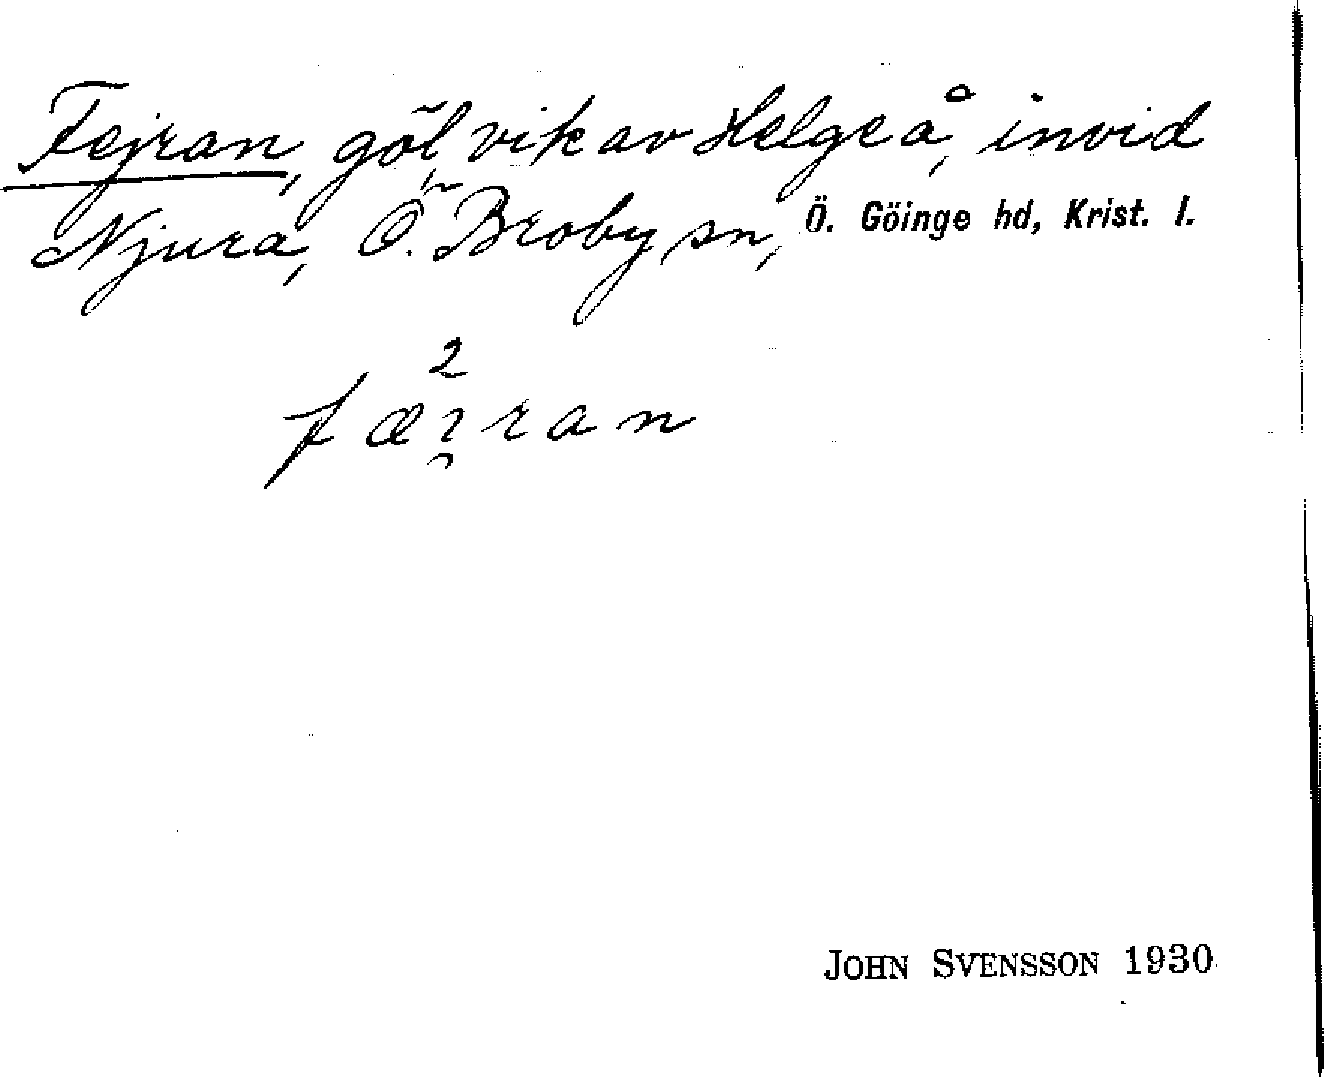 Fejran, göl, vik av Helgeå, invid
Njura, Ö. Broby sn, Ö. Göinge hd, Krist. l.
2
fæi̯ran
JOHN SVENSSON 1930